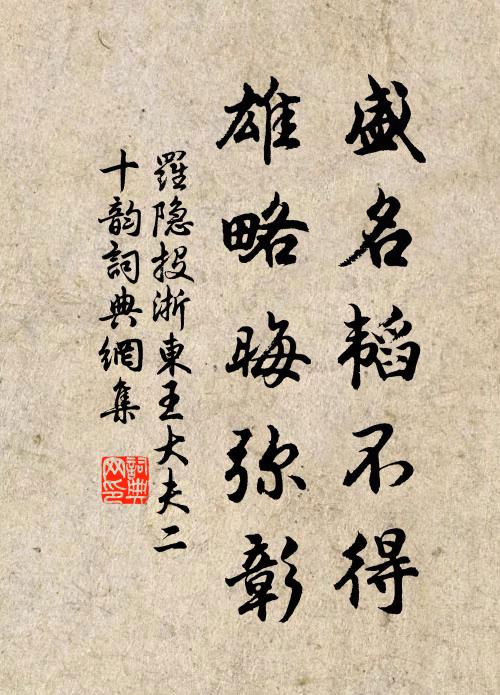 盛名韬不得
雄略晦弥彰
羅隐投浙東王大夫二
十韵詞典網集
詞典
网印